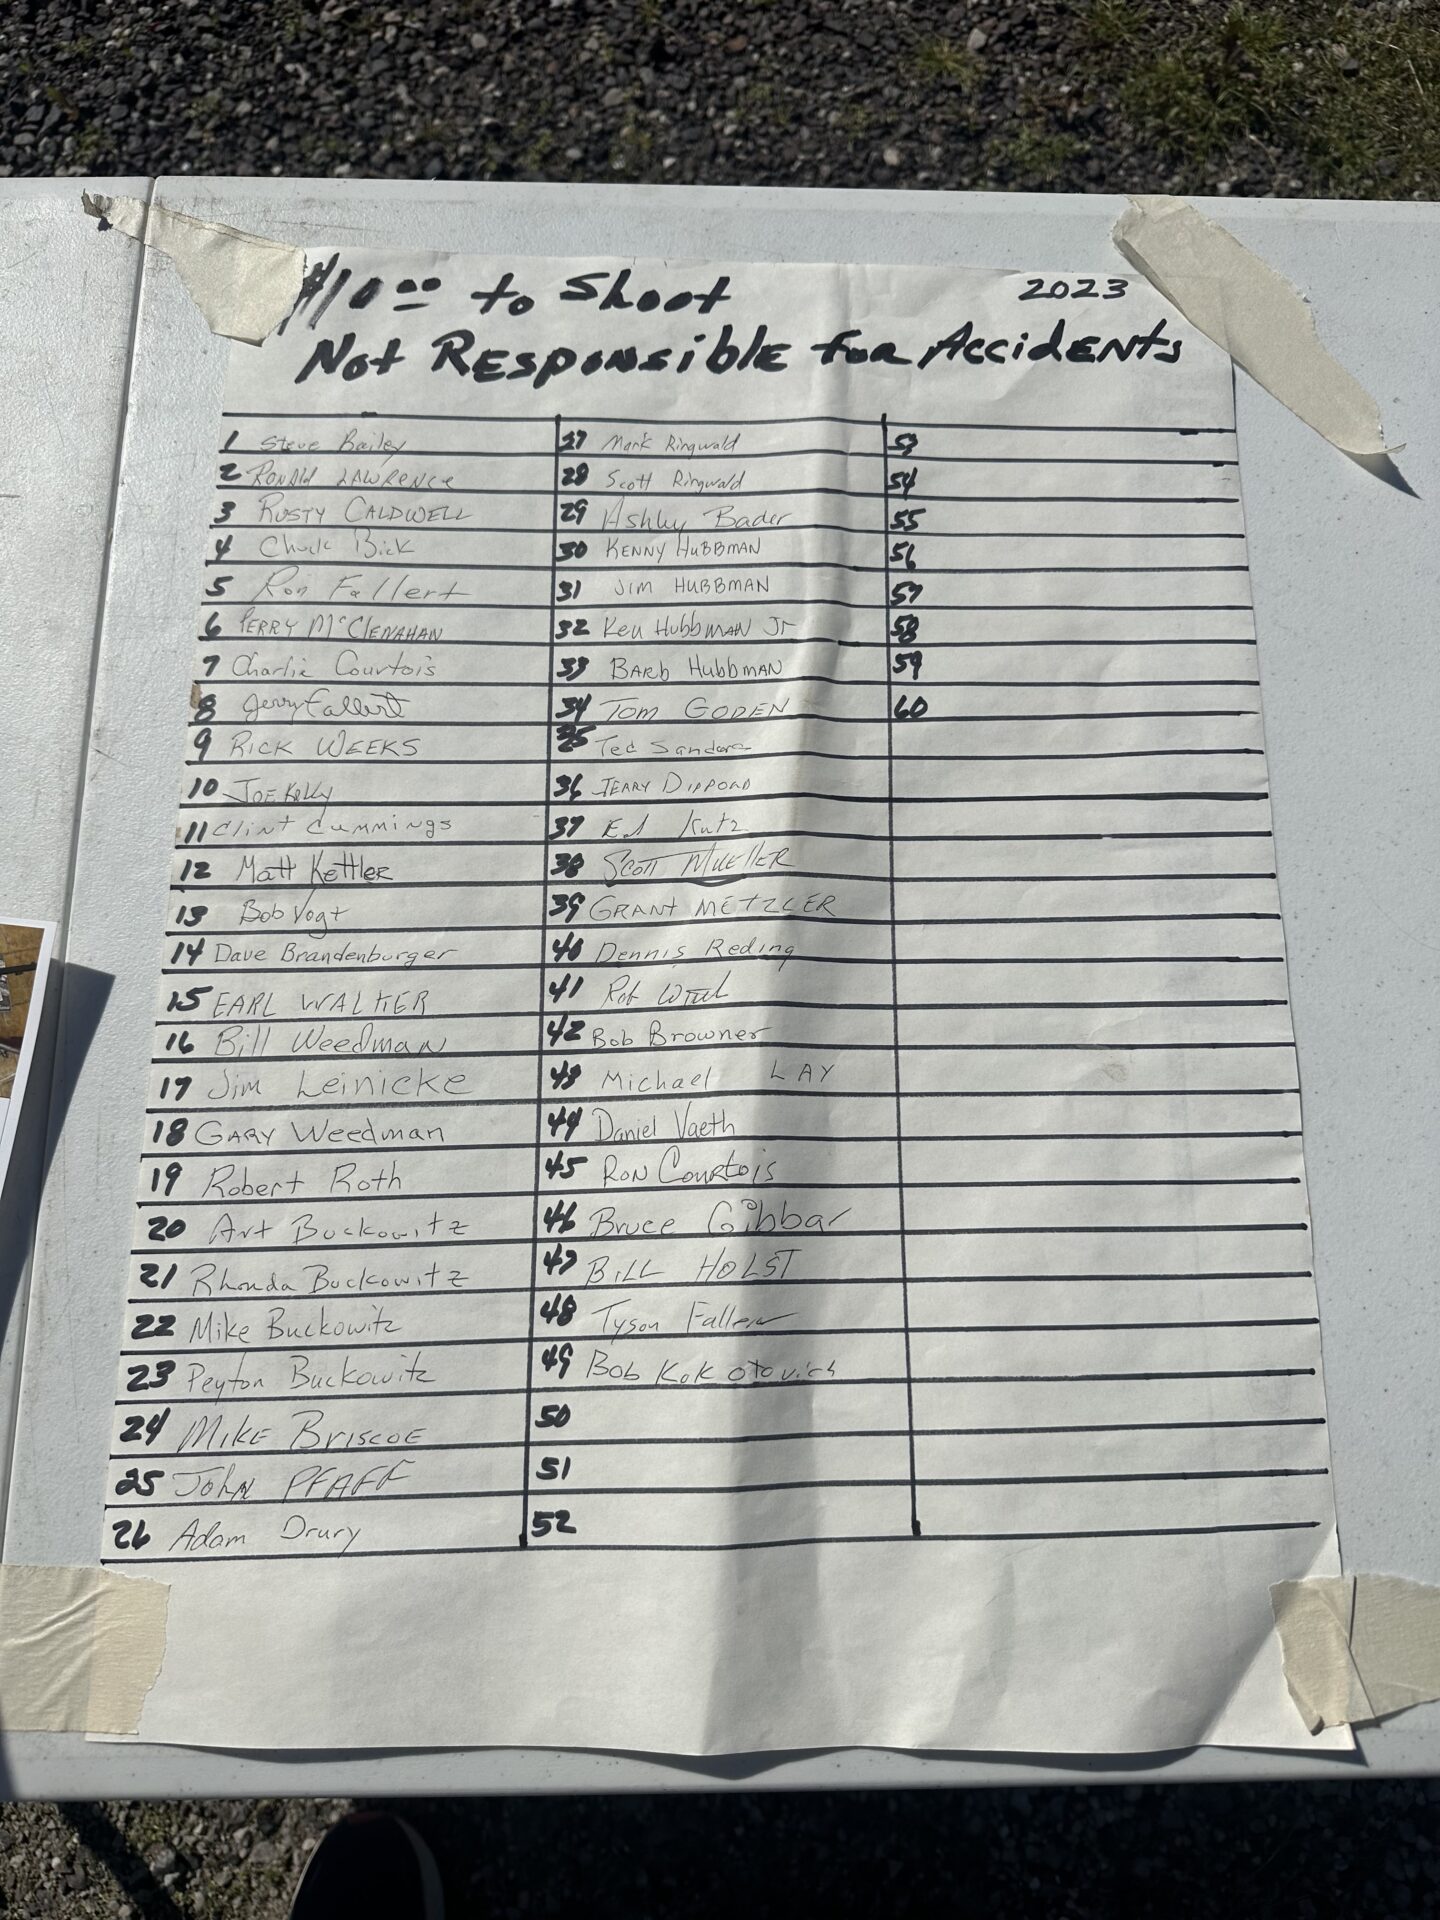 $10.00 to Shoot
2023
Not Responsible for Accidents
1 Steve Bailey
2 RONALD LAWRENCE
3 RUSTY CALDWELL
4 Chuck Bick
5 Ron Fallert
6 PERRY McCLENAHAN
7 Charlie Courtois
8 Jerry Fallert
9 RICK WEEKS
10 JOE KELLY
11 Clint Cummings
12 Matt Kettler
13 Bob Vogt
14 Dave Brandenburger
15 EARL WALKER
16 Bill Weedman
17 Jim Leinicke
18 GARY Weedman
19 Robert Roth
20 Art Buckowitz
21 Rhonda Buckowitz
22 Mike Buckowitz
23 Peyton Buckowitz
24 MIKE BRISCOE
25 JOHN PFAFF
26 Adam Drury
27 Mark Ringwald
28 Scott Ringwald
29 Ashley Bader
30 KENNY HUBBMAN
31 JIM HUBBMAN
32 Ken HubbMAN Jr
33 BARb HubbMAN
34 TOM GODEN
35 Ted Sanders
36 JERRY
37 Ed Kutz
38 SCOTT MUELLER
39 GRANT METZLER
40 Dennis Reding
41 Rob
42 Bob Browner
43 Michael LAY
44 Daniel Vaeth
45 RON Courtois
46 Bruce Gibbar
47 BILL HOLST
48 Tyson Fallert
49 Bob Kokotovich
50
51
52
53
54
55
56
57
58
59
60